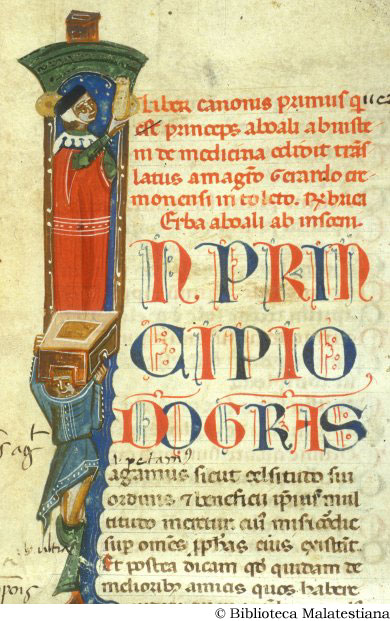 Liber canonis primus que
est princeps aboali abniste
ni de medicina edidit trās
latus a magrō Gerardo cre
monensi in toleto. Verbuci
Erba aboali ab insceni.
IN PRIN
CIPIO
DO GRAS
agamus sicut celsitudo sui
ordinis & beneficii ipius mul
titudo meretur cui misicōdie
sup omēs ipphas eius existūt.
Et postea dicam qd quidam de
melioribus amicis quos habere
© Biblioteca Malatestiana